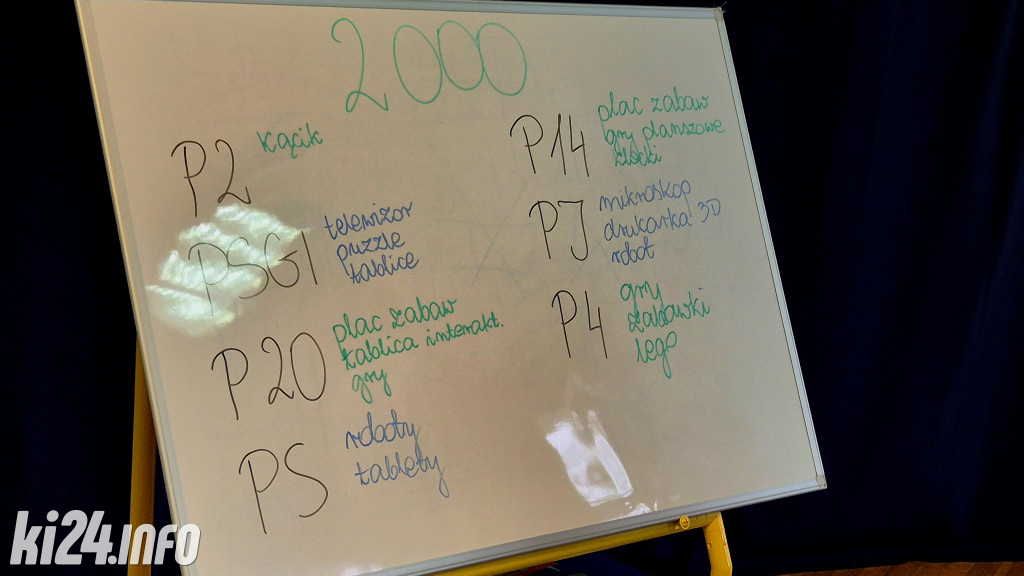 2000
P2 kącik
PSG1 telewizor
puzzle
tablice
P20 plac zabaw
tablica interakt.
gry
PS roboty
tablety
P14 plac zabaw
gry planszowe
klocki
PJ mikroskop
drukarka 3D
robot
P4 gry
zabawki
lego
ki24.info